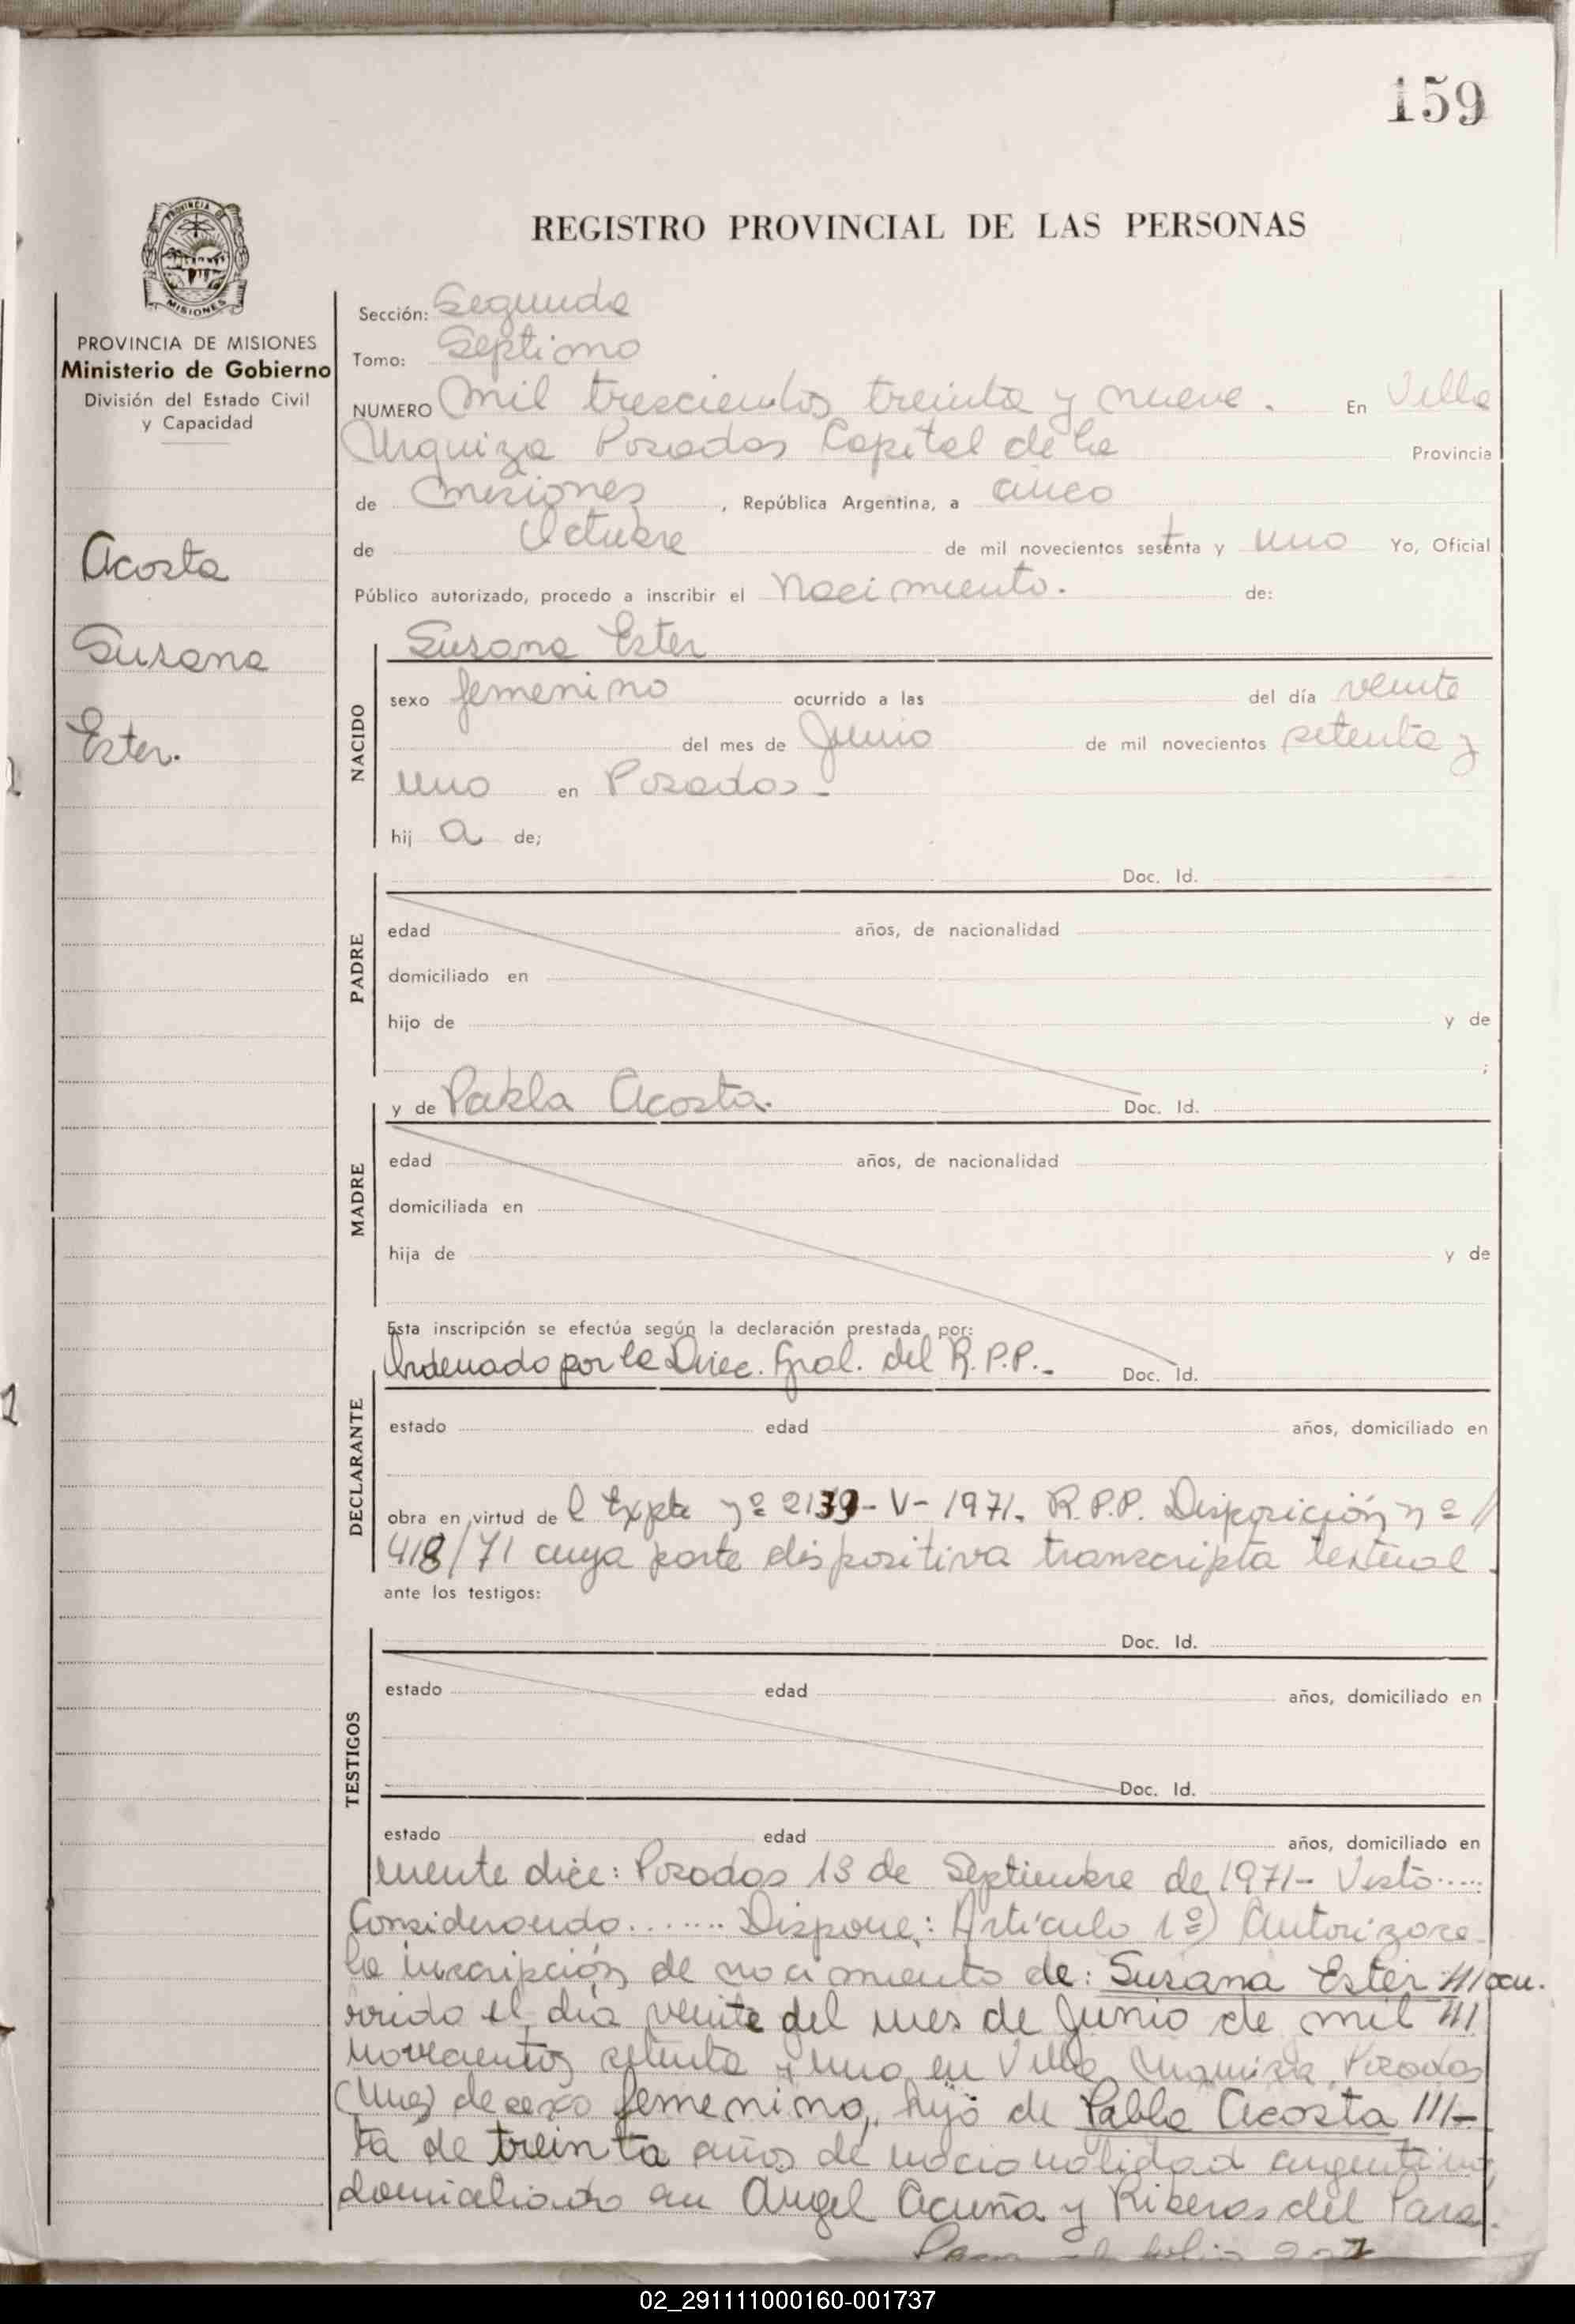 159
PROVINCIA DE
MISIONES
REGISTRO PROVINCIAL DE LAS PERSONAS
PROVINCIA DE MISIONES
Ministerio de Gobierno
División del Estado Civil
y Capacidad
Acosta
Susana
Ester.
Sección: Segunda
Tomo: Septimo
NUMERO mil trescientos treinta y nueve. En Villa
Urquiza Posadas Capital de la Provincia
de Misiones, República Argentina, a cinco
de Octubre de mil novecientos sestenta y uno Yo, Oficial
Público autorizado, procedo a inscribir el Nacimiento. de:
NACIDO
Susana Ester
sexo femenino ocurrido a las del día veinte
del mes de Junio de mil novecientos setenta y
uno en Posadas.-
hij a de;
PADRE
Doc. Id.
edad años, de nacionalidad
domiciliado en
hijo de y de
;
MADRE
y de Pabla Acosta. Doc. Id.
edad años, de nacionalidad
domiciliada en
hija de y de
DECLARANTE
Esta inscripción se efectúa según la declaración prestada por:
Ordenado por la Direc. Gral. del R.P.P.- Doc. Id.
estado edad años, domiciliado en
obra en virtud de l Expte nº 2139-V-1971. R.P.P. Disposición nº //
418/71 cuya parte dispositiva transcripta textual
ante los testigos:
TESTIGOS
Doc. Id.
estado edad años, domiciliado en
Doc. Id.
estado edad años, domiciliado en
mente dice: Posadas 13 de Septiembre de 1971- Visto.....
Considerando....... Dispone: Artículo 1º) Autorizase
la inscripción de nacimiento de: Susana Ester ocu.
rrido el día veinte del mes de Junio de mil
novecientos setenta y uno en Villa Urquiza, Posadas
(Mnes) de sexo femenino, hija de Pabla Acosta ///-
ta de treinta años de nacionalidad argentina,
domiciliado en Angel Acuña y Riberas del Para.
02_291111000160-001737